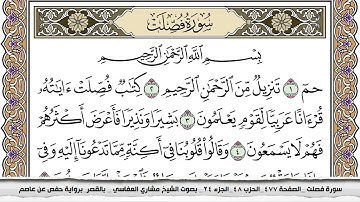 سُورَةُ فُصِّلَتْ
بِسْمِ اللَّهِ الرَّحْمَٰنِ الرَّحِيمِ
حمٓ ١ تَنزِيلٌ مِّنَ الرَّحْمَٰنِ الرَّحِيمِ ٢ كِتَٰبٌ فُصِّلَتْ ءَايَٰتُهُۥ
قُرْءَانًا عَرَبِيًّا لِّقَوْمٍ يَعْلَمُونَ ٣ بَشِيرًا وَنَذِيرًا فَأَعْرَضَ أَكْثَرُهُمْ
فَهُمْ لَا يَسْمَعُونَ ٤ وَقَالُوا۟ قُلُوبُنَا فِىٓ أَكِنَّةٍ مِّمَّا تَدْعُونَآ إِلَيْهِ وَفِىٓ
سورة فصلت .. الصفحة ٤٧٧ الحزب ٤٨ الجزء ٢٤ .. بصوت الشيخ مشاري العفاسي .. بالقصر برواية حفص عن عاصم